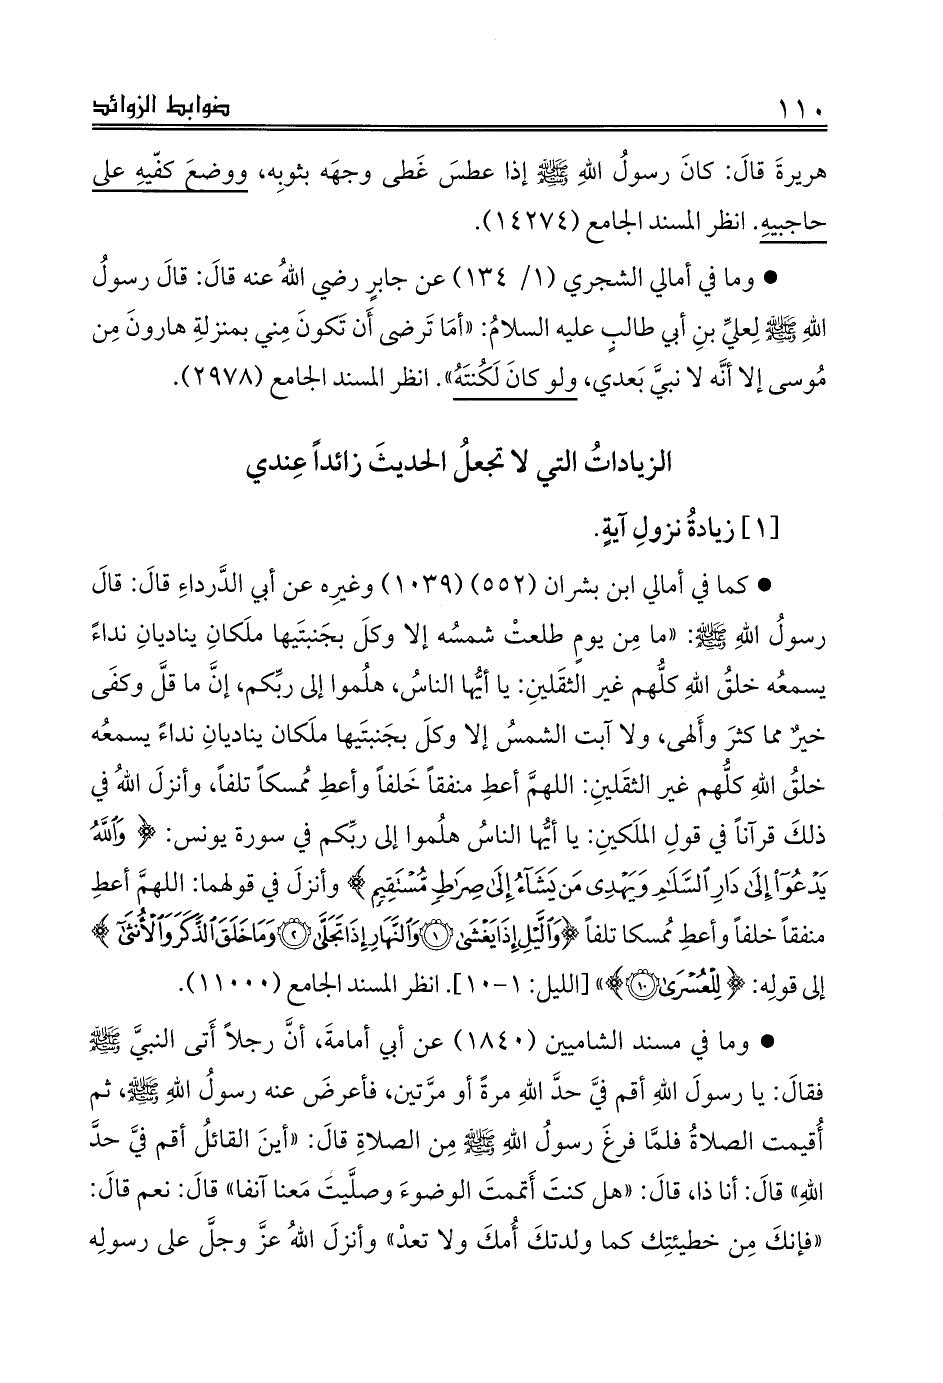 ١١٠ ضوابط الزوائد
هريرةَ قالَ: كانَ رسولُ اللهِ ﷺ إذا عطسَ غَطى وجهَه بثوبِه، ووضعَ كفّيهِ على
حاجبيهِ. انظر المسند الجامع (١٤٢٧٤).
● وما في أمالي الشجري (١/ ١٣٤) عن جابرٍ رضي اللهُ عنه قالَ: قالَ رسولُ
اللهِ ﷺ لِعليِّ بنِ أبي طالبٍ عليه السلامُ: «أمَا تَرضى أَن تَكونَ مِني بمنزلةِ هارونَ مِن
مُوسى إلا أنَّه لا نبيَّ بَعدي، ولو كانَ لَكُنتَهُ». انظر المسند الجامع (٢٩٧٨).
الزياداتُ التي لا تجعلُ الحديثَ زائداً عِندي
[١] زيادةُ نزولِ آيةٍ.
● كما في أمالي ابن بشران (٥٥٢) (١٠٣٩) وغيرِه عن أبي الدَّرداءِ قالَ: قالَ
رسولُ اللهِ ﷺ: «ما مِن يومٍ طلعتْ شمسُه إلا وكلَ بجَنبتَيها ملَكانِ يناديانِ نداءً
يسمعُه خلقُ اللهِ كلُّهم غير الثقَلينِ: يا أيُّها الناسُ، هلُموا إلى ربِّكم، إنَّ ما قلَّ وكفَى
خيرٌ مما كثرَ وأَلهى، ولا آبت الشمسُ إلا وكلَ بجَنبتَيها ملَكان يناديانِ نداءً يسمعُه
خلقُ اللهِ كلُّهم غير الثقَلينِ: اللهمَّ أعطِ منفقاً خَلفاً وأعطِ مُمسكاً تلفاً، وأنزلَ اللهُ في
ذلكَ قرآناً في قولِ الملَكينِ: يا أيُّها الناسُ هلُموا إلى ربِّكم في سورة يونس: ﴿ وَٱللَّهُ
يَدْعُوٓا۟ إِلَىٰ دَارِ ٱلسَّلَٰمِ وَيَهْدِى مَن يَشَآءُ إِلَىٰ صِرَٰطٍ مُّسْتَقِيمٍ ﴾ وأنزلَ في قولهما: اللهمَّ أعطِ
منفقاً خلفاً وأعطِ مُمسكا تلفاً ﴿وَٱلَّيْلِ إِذَا يَغْشَىٰ ١ وَٱلنَّهَارِ إِذَا تَجَلَّىٰ ٢ وَمَا خَلَقَ ٱلذَّكَرَ وَٱلْأُنثَىٰٓ ﴾
إلى قولِه: ﴿ لِلْعُسْرَىٰ ١٠﴾» [الليل: ١-١٠]. انظر المسند الجامع (١١٠٠٠).
● وما في مسند الشاميين (١٨٤٠) عن أبي أمامةَ، أنَّ رجلاً أَتى النبيَّ ﷺ
فقالَ: يا رسولَ اللهِ أقم فيَّ حدَّ اللهِ مرةً أو مرَّتين، فأعرضَ عنه رسولُ اللهِ ﷺ، ثم
أُقيمت الصلاةُ فلمَّا فرغَ رسولُ اللهِ ﷺ مِن الصلاةِ قالَ: «أينَ القائلُ أقم فيَّ حدَّ
اللهِ» قالَ: أنا ذا، قالَ: «هل كنتَ أَتممتَ الوضوءَ وصلَّيتَ مَعنا آنفا» قالَ: نعم قالَ:
«فإنكَ مِن خطيئتِك كما ولدتكَ أُمكَ ولا تعدْ» وأنزلَ اللهُ عزَّ وجلَّ على رسولِه